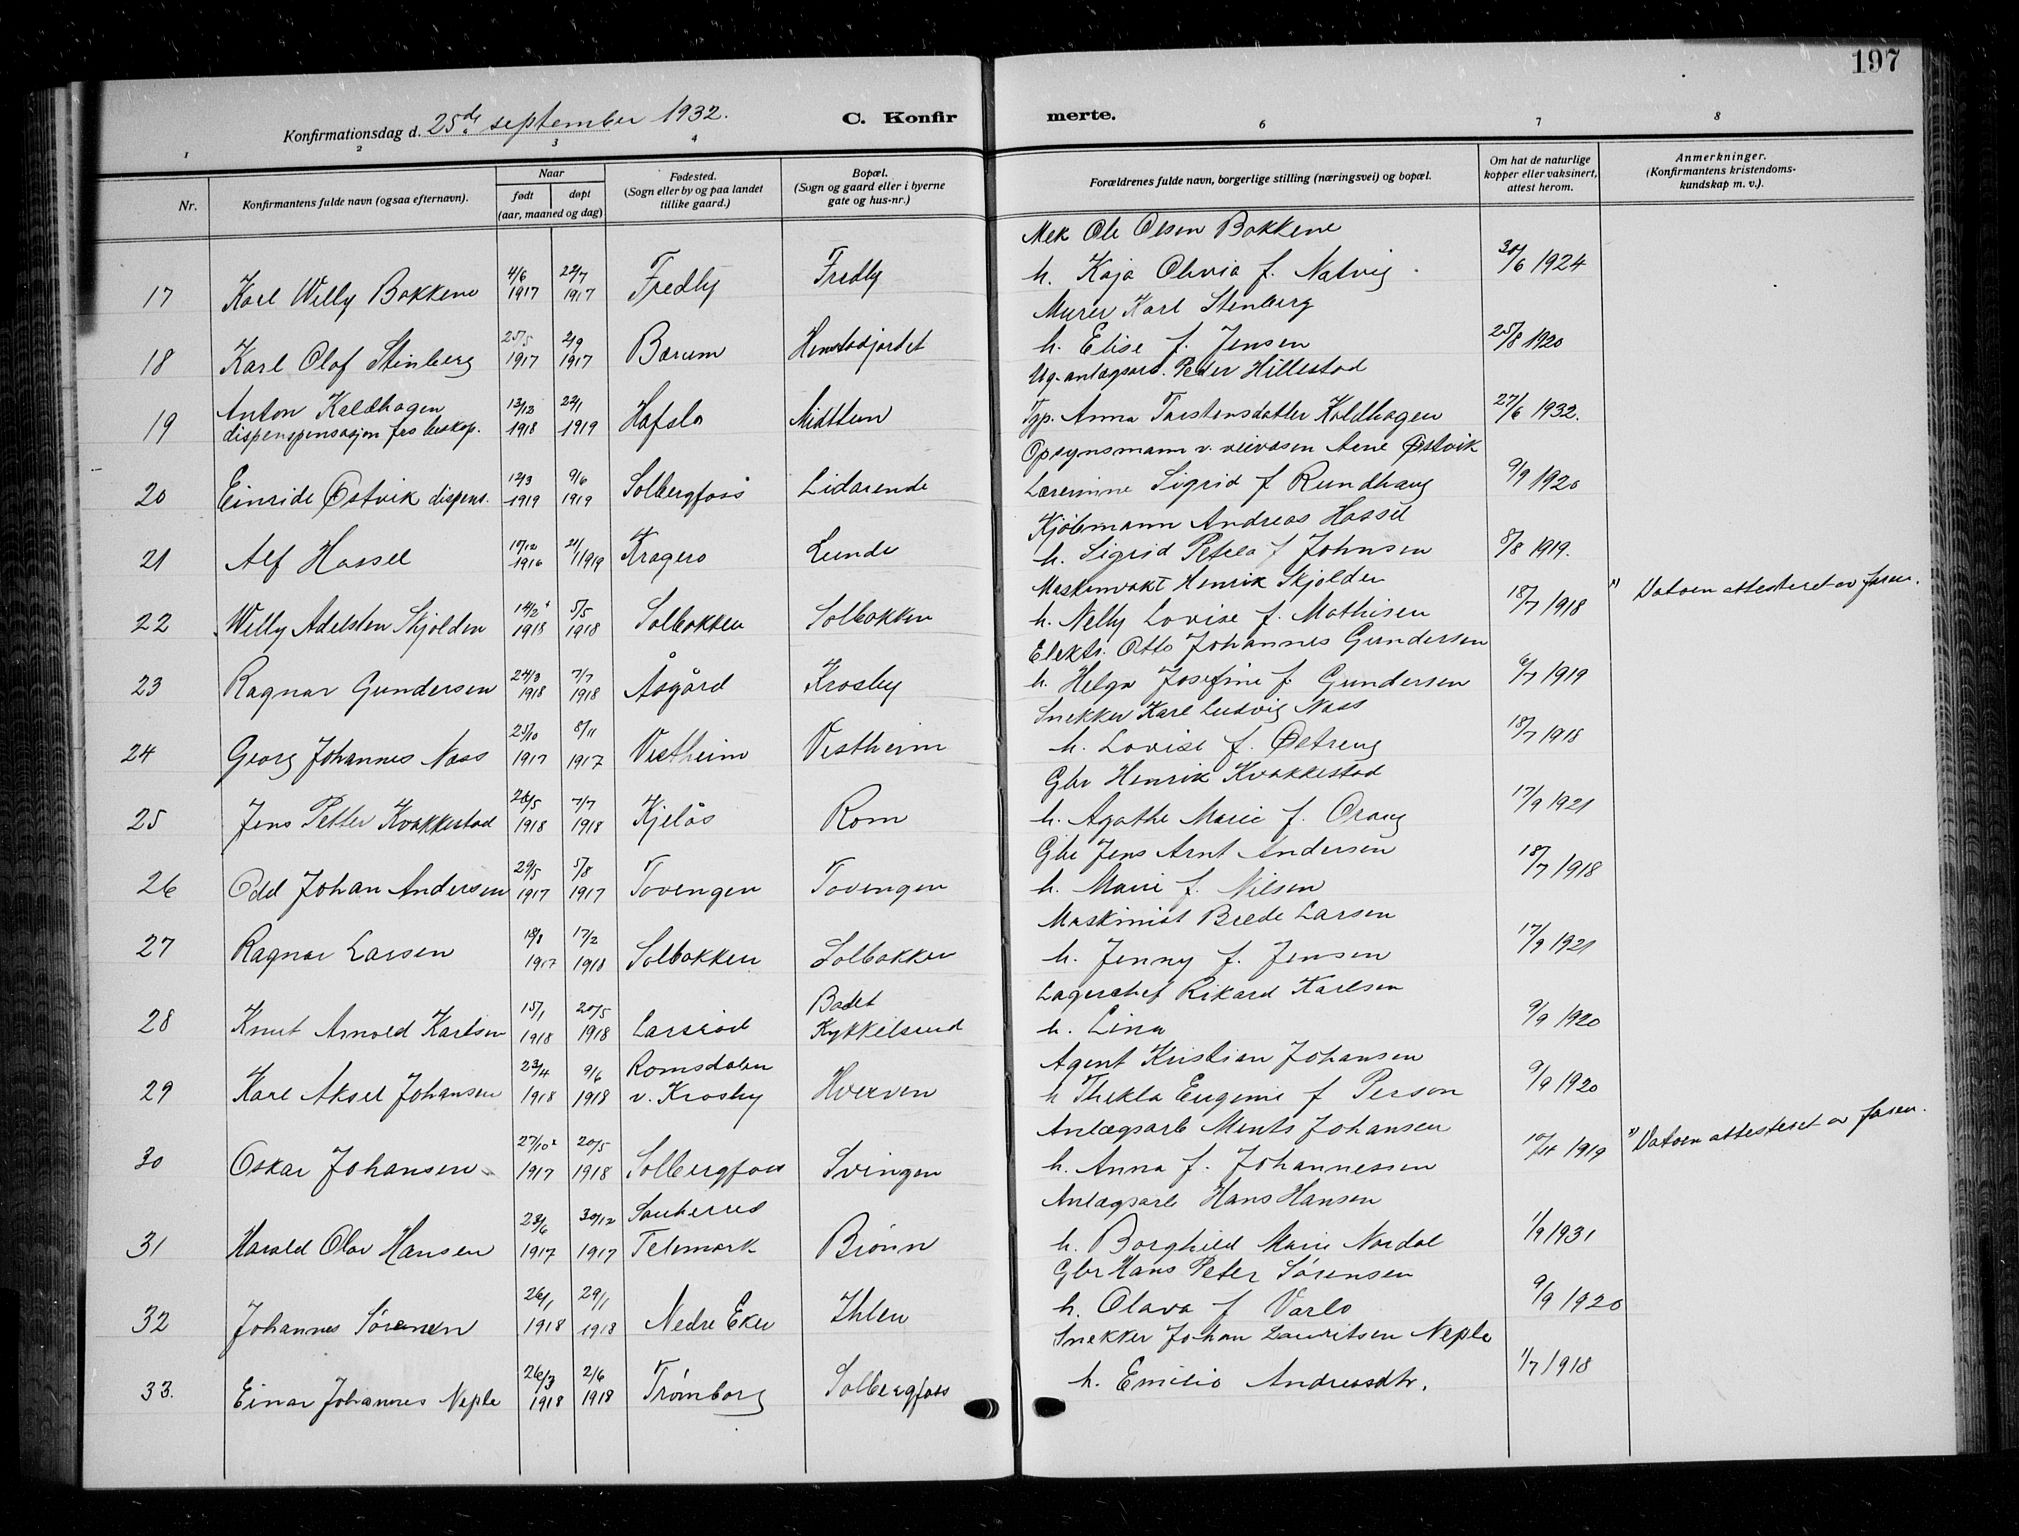 197
Konfirmationsdag d. 25de september 1932.
C. Konfirmerte.
1 2 3 4 6 7 8
Nr.
Konfirmantens fulde navn (ogsaa efternavn).
Naar
født døpt
(aar, maaned og dag)
Fødested.
(Sogn eller by og paa landet
tillike gaard.)
Bopæl.
(Sogn og gaard eller i byerne
gate og hus-nr.)
Forældrenes fulde navn, borgerlige stilling (næringsvei) og bopæl.
Om hat de naturlige
kopper eller vaksinert,
attest herom.
Anmerkninger.
(Konfirmantens kristendoms-
kundskap m. v.).
Mek Ole Olsen Bakkene
17 Karl Willy Bakkene 4/6 1917 22/7 1917 Fredly Fredly h. Kaja Olivia f. Natvig 30/6 1924
Murer Karl Stenberg
18 Karl Olaf Stenberg 25/5 1917 2/9 1917 Bærum h. Elise f. Jensen 25/8 1920
Ug. anlægsarb. Peder Hillestad
19 Anton Kaldhagen 12/12 1918 22/1 1919 Hafslo Midttun Anna Torstensdatter Kaldhagen 27/6 1932.
Opsynsmann v. veivesen Arne Østvik
20 Einride Østvik dispens. 12/3 1919 9/6 1919 Solbergfoss Lidarende Lærerinne Sigrid f Rundhaug 9/9 1920
Kjøbmann Andreas Hassel
21 Alf Hassel 1916 21/1 1919 Kragerø Lunde h. Sigrid Petrea f Johnsen 8/8 1919.
Maskinvakt Henrik Skjolden
22 Willy Adelsten Skjolden 14/2 1918 5/5 1918 Solbakken Solbakken h. Nelly Lovise f. Mathisen 18/7 1918 Datoen attesteret av faren.
Elektr. Otto Johannes Gundersen
23 Ragnar Gundersen 24/3 1918 7/7 1918 Åsgård Krosby h. Helga Josefine f. Gundersen 6/7 1919
Snekker Karl Ludvig Nass
24 Georg Johannes Nass 25/10 1917 8/11 1917 Vestheim Vestheim h. Lovise f. Østreng 18/7 1918
Gbr Henrik Kvakkestad
25 Jens Petter Kvakkestad 26/5 1918 7/7 1918 Kjelås Rom h. Agathe Marie f. Oraug 17/9 1921
Gbr Jens Arnt Andersen
26 Odd Johan Andersen 29/5 1917 5/8 1917 Tovengen Tovengen h. Marie f. Nilsen 18/7 1918
Maskinist Brede Larsen
27 Ragnar Larsen 1917 17/2 1918 Solbakken Solbakken h. Jenny f. Jensen 17/9 1921
Lagerchef Rikard Karlsen
28 Knut Arnold Karlsen 15/1 1918 20/5 1918 Badet Kykkelsrud h. Lina 9/9 1920
Agent Kristian Johansen
29 Karl Aksel Johansen 23/4 1918 9/6 1918 Romsdalen v. Krosby Hverven h Thekla Eugenie f Person 9/9 1920
Anlægsarb Ments Johansen
30 Oskar Johansen 27/10 1917 20/5 1918 Solbergfoss Svingen h. Anna f. Johannessen 1919 Datoen attesteret av faren.
Anlægsarb Hans Hansen
31 Harald Olav Hansen 23/6 1917 30/12 1917 Sauherred Telemark Brønn h. Borghild Marie Nordal 1/9 1931
Gbr Hans Peter Sørensen
32 Johannes Sørensen 26/1 1918 29/1 1918 Nedre Eker Ihlen h. Olava f Varlo 9/9 1920
Snekker Johan Lauritsen Neple
33. Einar Johannes Neple 26/3 1918 2/6 1918 Trømborg Solbergfoss h. Emilie Andreasdtr. 1/7 1918